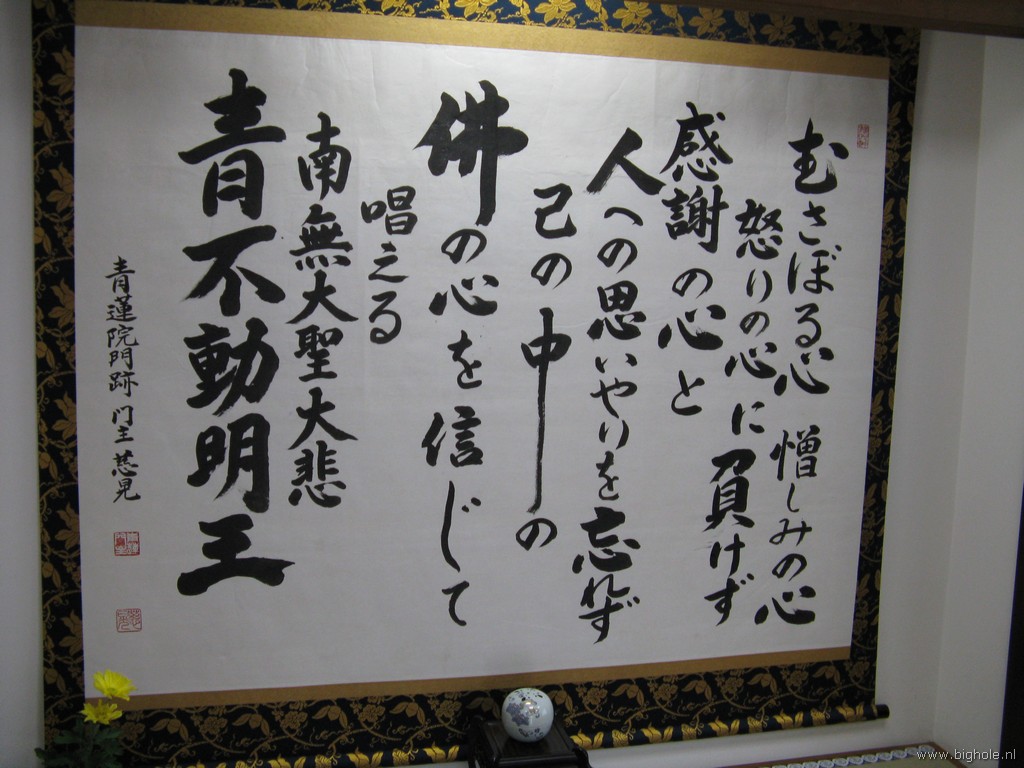 むさぼる心 憎しみの心
怒りの心に負けず
感謝の心と
人への思いやりを忘れず
己の中の
佛の心を信じて
唱える
南無大聖大悲
青不動明王
青蓮院門跡 门主 慈晃
www.bighole.nl